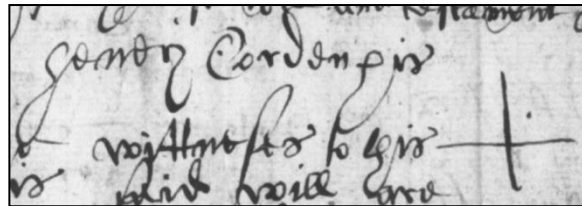 testament
Henry Corden his
wittnesses to this
is said will are